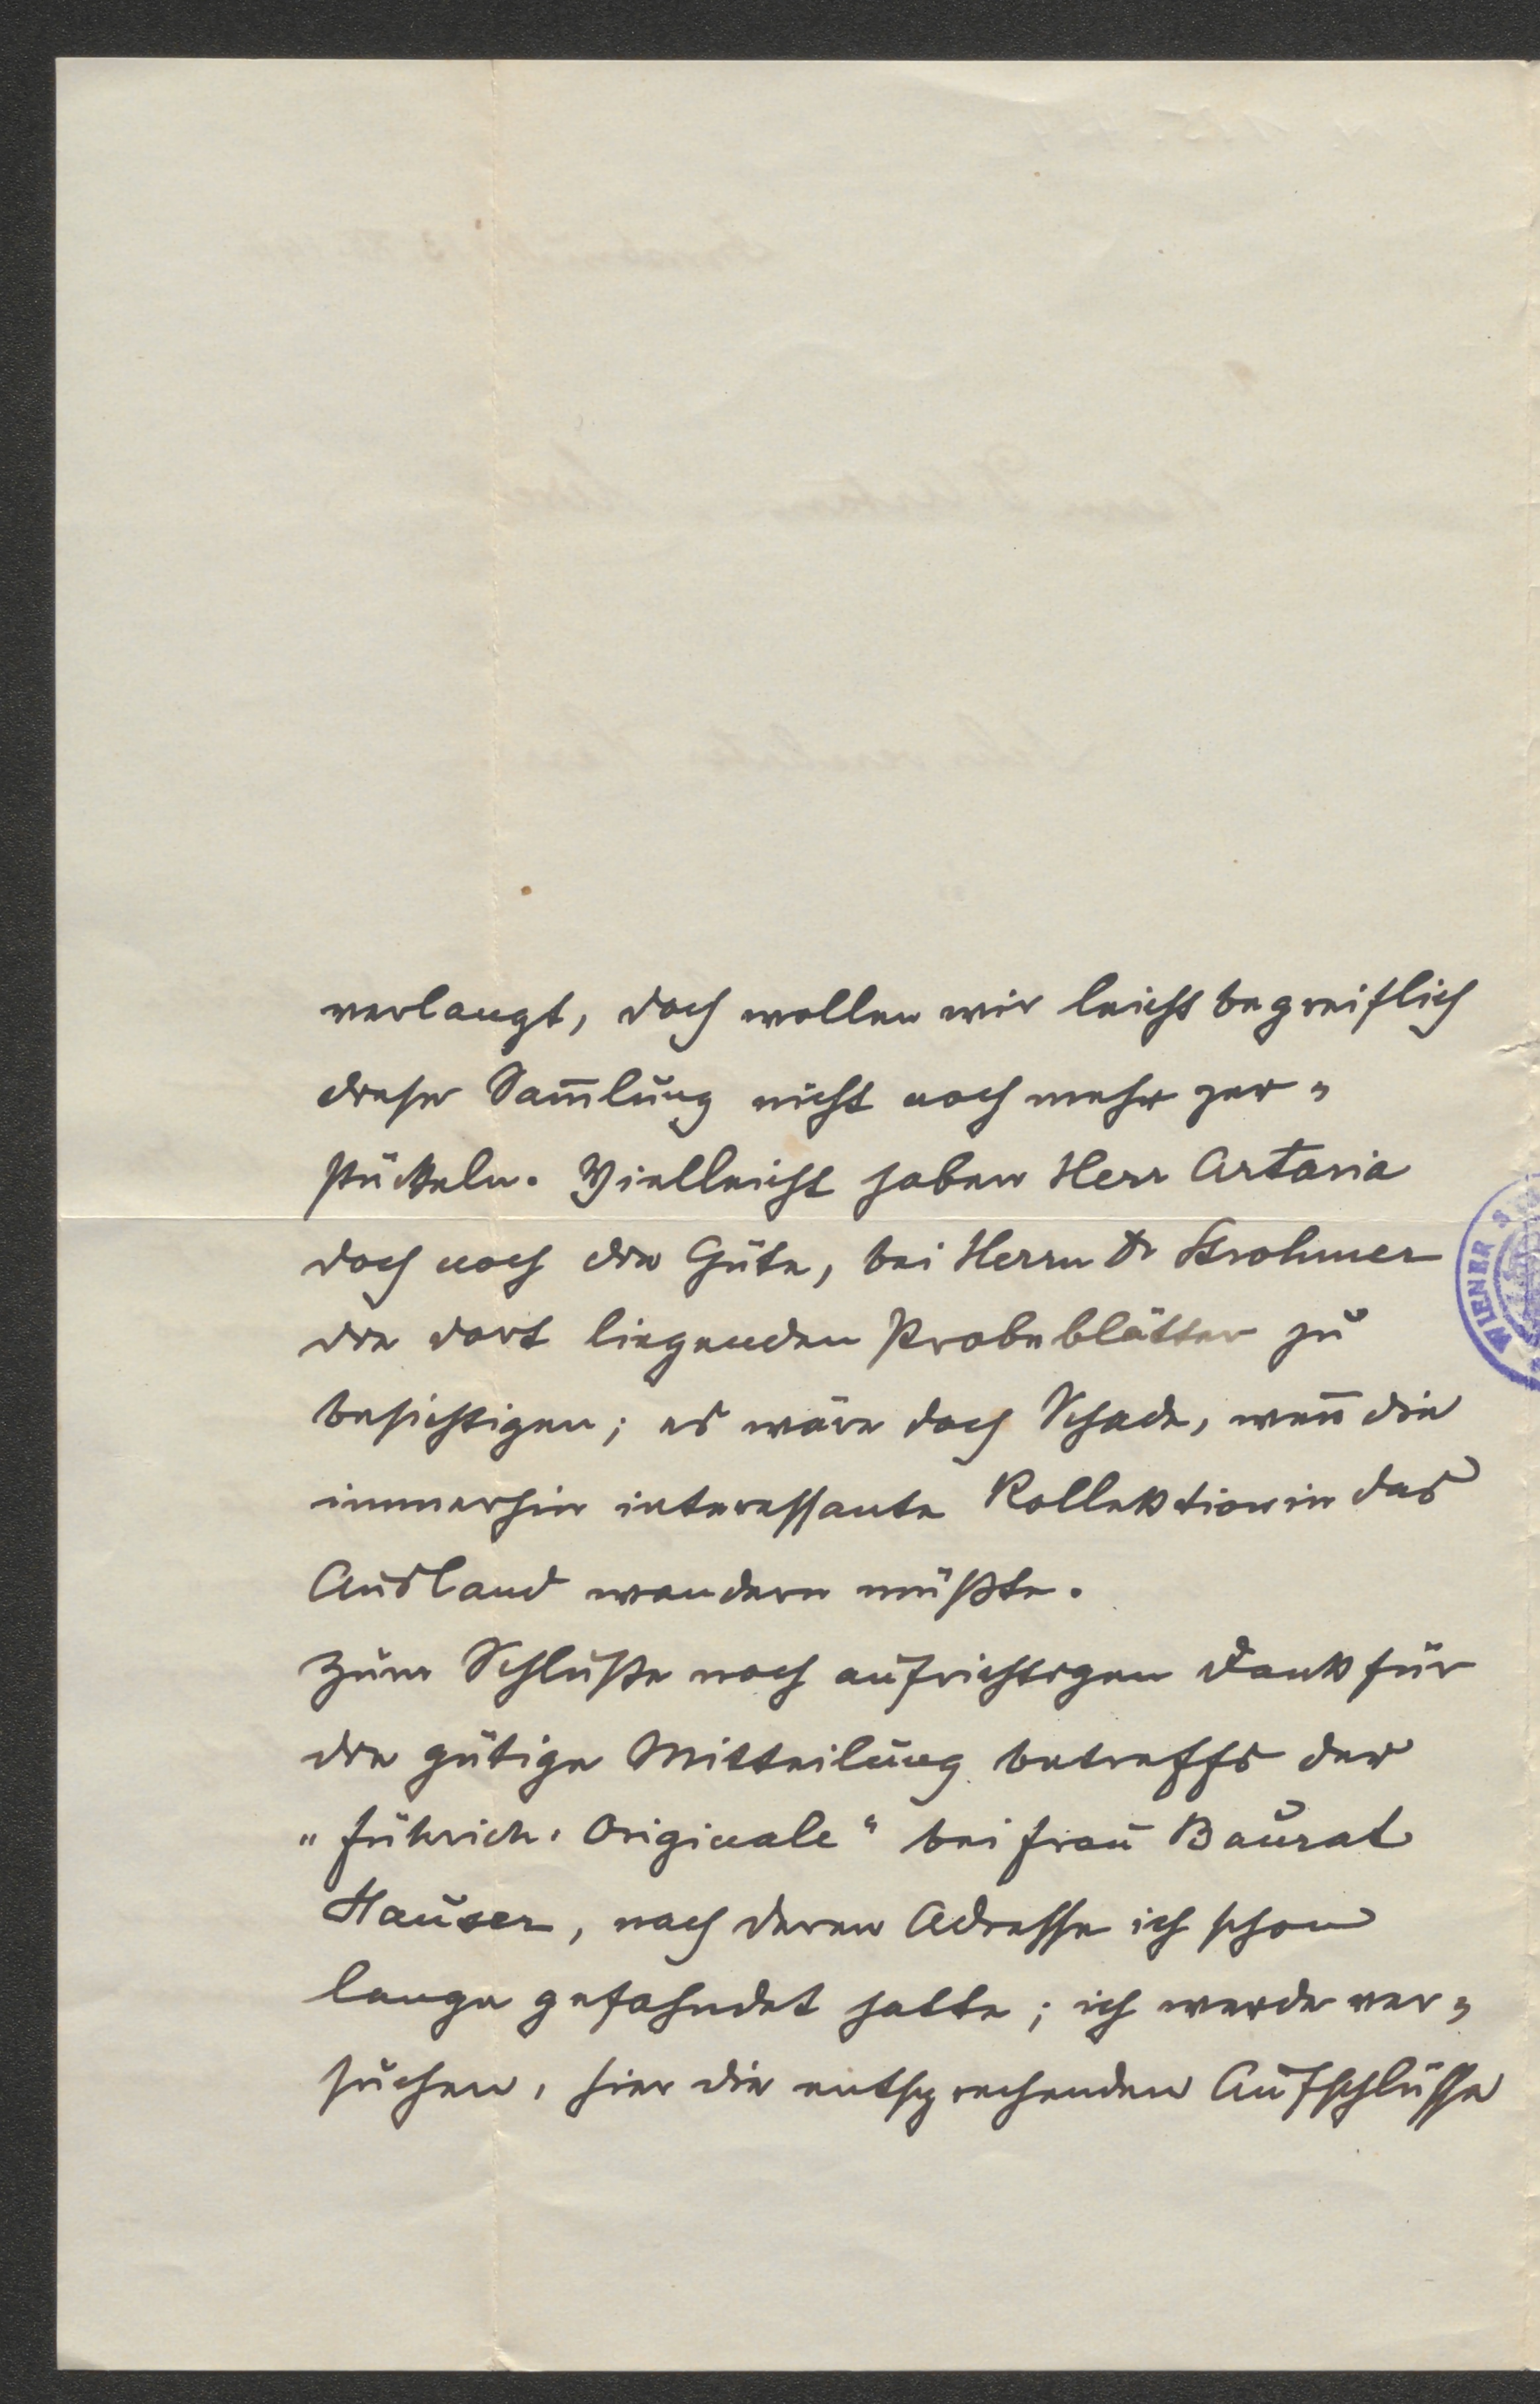 verlangt, doch wollen wir leicht begreiflich
diese Sam̄lung nicht noch mehr zer„
stückeln. Vielleicht haben Herr Artaria
doch noch die Güte, bei Herrn Dr Strohmer
die dort liegenden Probeblätter zu
besichtigen; es wäre doch Schade, wen̄ die
immerhin interessante Kollektion in das
Ausland wandern müßte.
Zum Schluße noch aufrichtigen Dank für
die gütige Mitteilung betreffs der
„Führich-Originale“ bei Frau Baurat
Hauser, nach deren Adresse ich schon
lange gefahndet hatte; ich werde ver„
suchen, hier die entsprechenden Aufschlüsse
WIENER